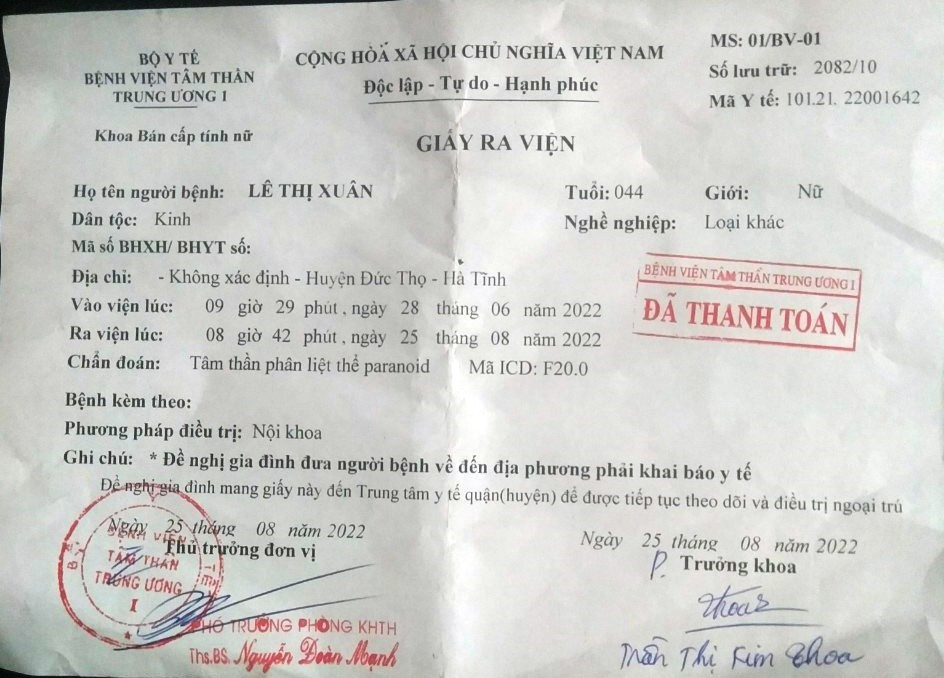 BỘ Y TẾ
BỆNH VIỆN TÂM THẦN
TRUNG ƯƠNG 1
Khoa Bán cấp tính nữ
CỘNG HÒA XÃ HỘI CHỦ NGHĨA VIỆT NAM
Độc lập - Tự do - Hạnh phúc
MS: 01/BV-01
Số lưu trữ: 2082/10
Mã Y tế: 101.21. 22001642
GIẤY RA VIỆN
Họ tên người bệnh: LÊ THỊ XUÂN Tuổi: 044 Giới: Nữ
Dân tộc: Kinh Nghề nghiệp: Loại khác
Mã số BHXH/ BHYT số:
Địa chỉ: - Không xác định - Huyện Đức Thọ - Hà Tĩnh
Vào viện lúc: 09 giờ 29 phút , ngày 28 tháng 06 năm 2022
Ra viện lúc: 08 giờ 42 phút , ngày 25 tháng 08 năm 2022
BỆNH VIỆN TÂM THẦN TRUNG ƯƠNG 1
ĐÃ THANH TOÁN
Chẩn đoán: Tâm thần phân liệt thể paranoid Mã ICD: F20.0
Bệnh kèm theo:
Phương pháp điều trị: Nội khoa
Ghi chú: * Đề nghị gia đình đưa người bệnh về đến địa phương phải khai báo y tế
Đề nghị gia đình mang giấy này đến Trung tâm y tế quận(huyện) để được tiếp tục theo dõi và điều trị ngoại trú
Ngày 25 tháng 08 năm 2022
Thủ trưởng đơn vị
BỆNH VIỆN
TÂM THẦN
TRUNG ƯƠNG
I
PHÓ TRƯỞNG PHÒNG KHTH
Ths.BS. Nguyễn Doãn Mạnh
Ngày 25 tháng 08 năm 2022
P. Trưởng khoa
Thoa
Trần Thị Kim Thoa